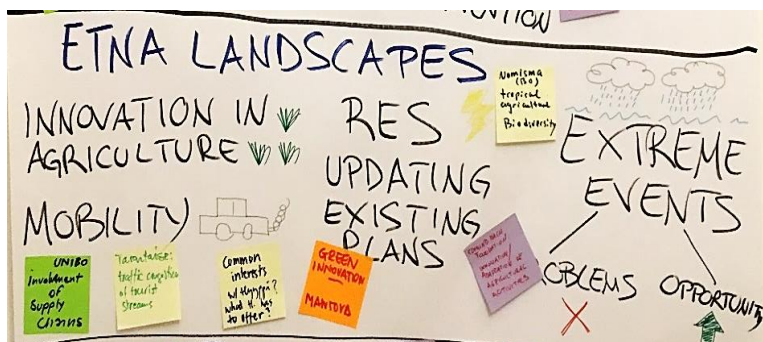 ETNA LANDSCAPES
INNOVATION IN
AGRICULTURE
MOBILITY
RES
UPDATING
EXISTING
PLANS
Nomisma
(BO)
tropical
agriculture
Biodiversity
EXTREME
EVENTS
OBLEMS
OPPORTUNITY
UNIBO
involvment
of
Supply
Chains
traffic congestion
of tourist
streams
Common
interests
what
to offer?
GREEN
INNOVATION
MANTOVA
INNOVATION
AGRICULTURAL
ACTIVITIES